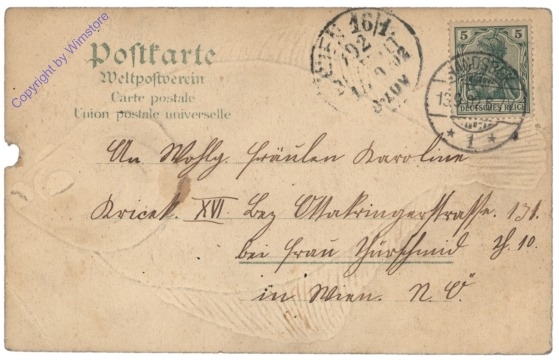 Copyright by Wimstore
Postkarte
Weltpostverein
Carte postale
Union postale universelle
WIEN 16/1
5
DEUTSCHES REICH
* 1 *
An Wohlg. Fräulen Karoline
Kricek. XVI. Bez Ottakringerstrasse. 131.
bei Frau Thürschmid Th. 10.
in Wien. N. Ö.